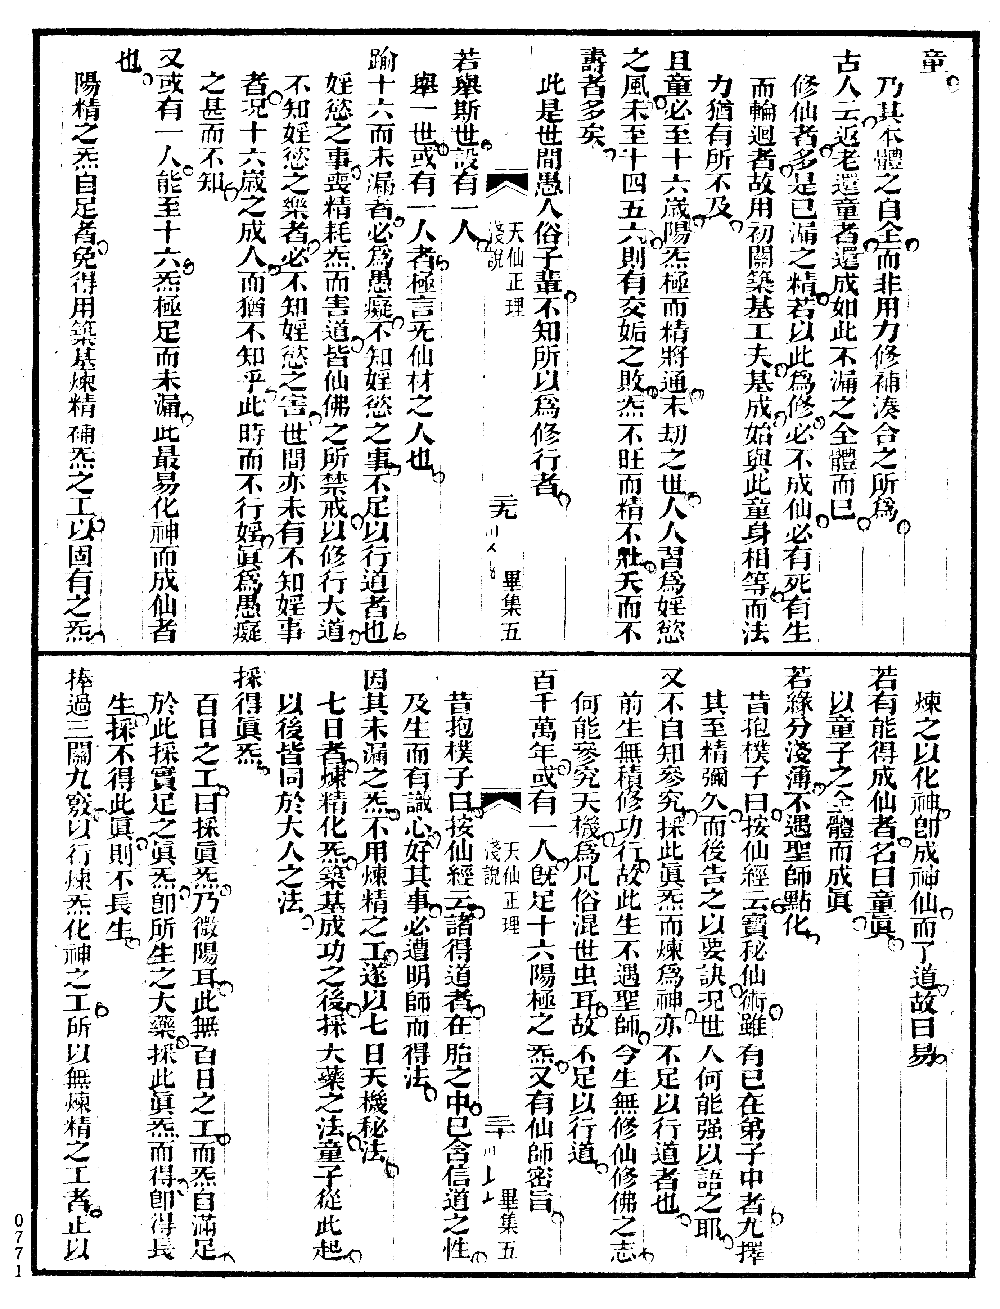 童
乃其本體之自全而非用力修補湊合之所爲
古人云返老還童者還成如此不漏之全體而已
修仙者多是已漏之精若以此爲修必不成仙必有死有生
而輪迴者故用初關築基工夫基成始與此童身相等而法
力猶有所不及
且童必至十六歲陽炁極而精將通末劫之世人人習爲婬慾
之風未至十四五六則有交姤之敗炁不旺而精不壯夭而不
壽者多矣
此是世間愚人俗子輩不知所以爲修行者
天仙正理
淺說
二九
畢集五
若舉斯世設有一人
舉一世或有一人者極言旡仙材之人也
踰十六而未漏者必爲愚癡不知婬慾之事不足以行道者也
婬慾之事喪精耗炁而害道皆仙佛之所禁戒以修行大道
不知婬慾之樂者必不知婬慾之害世間亦未有不知婬事
者況十六歲之成人而猶不知乎此時而不行婬眞爲愚癡
之甚而不知
又或有一人能至十六炁極足而未漏此最易化神而成仙者
也
陽精之炁自足者免得用築基煉精補炁之工以固有之炁
煉之以化神卽成神仙而了道故曰易
若有能得成仙者名曰童眞
以童子之全體而成眞
若緣分淺薄不遇聖師點化
昔抱樸子曰按仙經云寶秘仙術雖有已在弟子中者尤擇
其至精彌久而後告之以要訣況世人何能强以語之耶
又不自知參究採此眞炁而煉爲神亦不足以行道者也
前生無積修功行故此生不遇聖師今生無修仙修佛之志
何能參究天機爲凡俗混世虫耳故不足以行道
百千萬年或有一人旣足十六陽極之炁又有仙師密旨
天仙正理
淺說
三十
畢集五
昔抱樸子曰按仙經云諸得道者在胎之中已含信道之性
及生而有識心好其事必遭明師而得法
因其未漏之炁不用煉精之工遂以七日天機秘法
七日者煉精化炁築基成功之後採大藥之法童子從此起
以後皆同於大人之法
採得眞炁
百日之工曰採眞炁乃微陽耳此無百日之工而炁自滿足
於此採實足之眞炁卽所生之大藥採此眞炁而得卽得長
生採不得此眞則不長生
捧過三關九竅以行煉炁化神之工所以無煉精之工者止以
0771